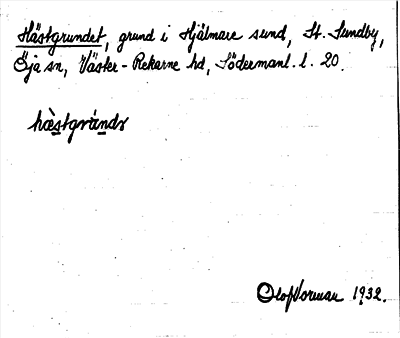 Hästgrundet, grund i Hjälmare sund, St. Sundby,
Öja sn, Väster-Rekarne hd, Södermanl. l. 20.
hæ̀stgrúndǝ
Olof Norman 1932.